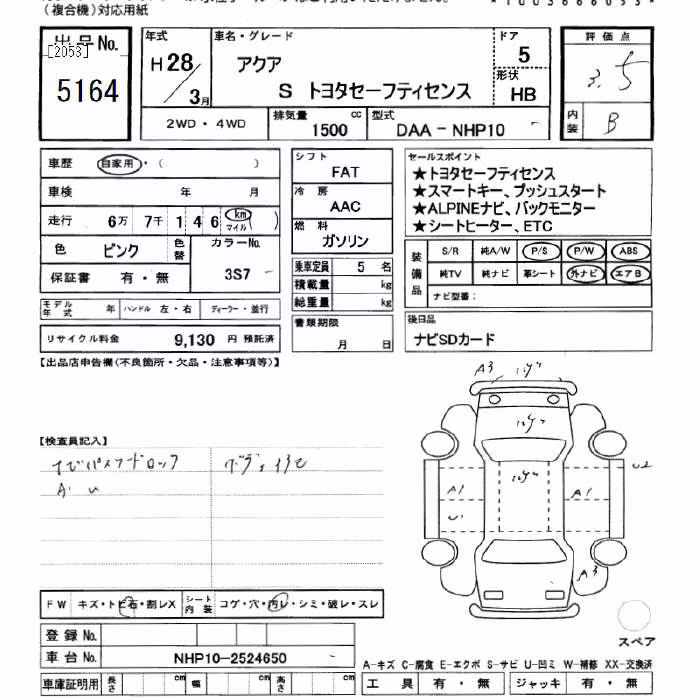 （複合機）対応用紙
出品No.
[2053]
5164
年式
H28/3月
車名・グレード
アクア
S トヨタセーフティセンス
ドア
5
形状
HB
評価点
3.5
内装
B
2WD・4WD
排気量
1500 cc
型式
DAA－NHP10 －
車歴 自家用・（ ）
車検 年 月
走行 6万 7千 1 4 6 (km マイル)
色 ピンク 色替 カラーNo.
3S7 －
保証書 有・無
モデル年式 年 ハンドル 左・右 ディーラー・並行
リサイクル料金 9,130 円 預託済
シフト
FAT
冷房
AAC
燃料
ガソリン
乗車定員 5 名
積載量 kg
総重量 kg
書類期限
月 日
セールスポイント
★トヨタセーフティセンス
★スマートキー、プッシュスタート
★ALPINEナビ、バックモニター
★シートヒーター、ETC
装備品
S/R 純A/W P/S P/W ABS
純TV 純ナビ 革シート 外ナビ エアB
ナビ型番：
後日品
ナビSDカード
【出品店申告欄（不良箇所・欠品・注意事項等）】
【検査員記入】
ナビパスワードロック
A・U
A3
A1
U1
A1
U2
A3
FW キズ・トビ石・割レX シート内装 コゲ・穴・汚レ・シミ・破レ・スレ
登録No.
車台No. NHP10-2524650 －
車庫証明用 長さ cm 幅 cm 高さ cm
スペア
A-キズ C-腐食 E-エクボ S-サビ U-凹ミ W-補修 XX-交換済
工具 有・無 ジャッキ 有・無